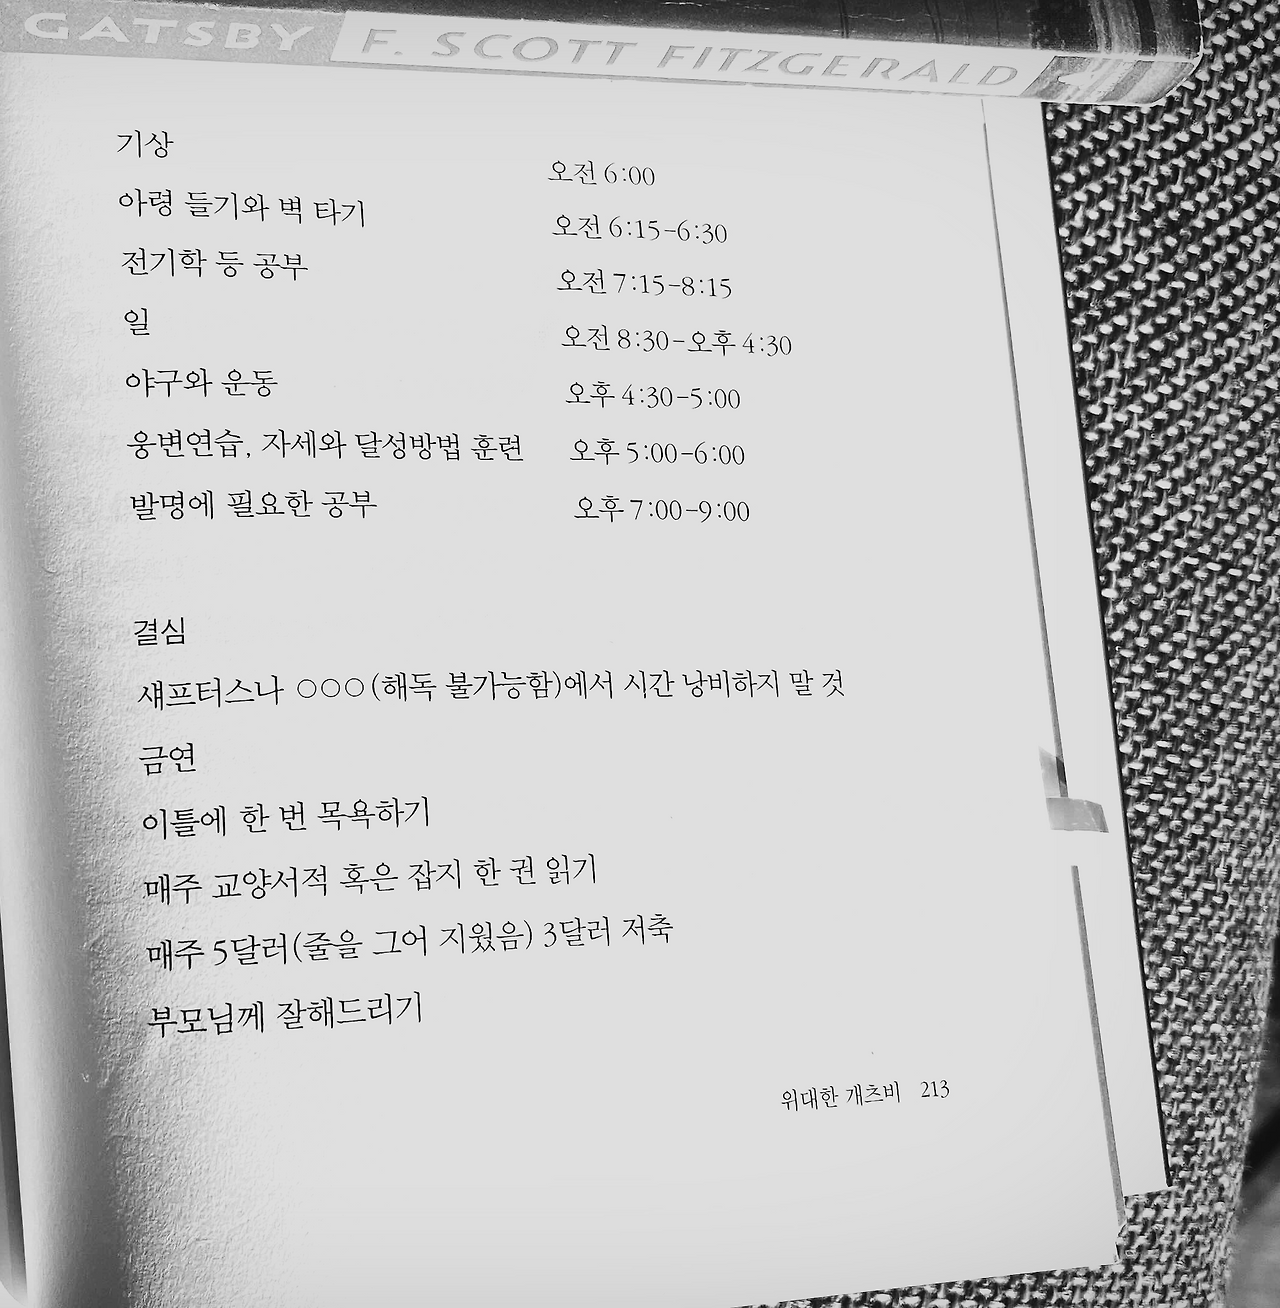 GATSBY F. SCOTT FITZGERALD
기상 오전 6:00
아령 들기와 벽 타기 오전 6:15-6:30
전기학 등 공부 오전 7:15-8:15
일 오전 8:30-오후 4:30
야구와 운동 오후 4:30-5:00
웅변연습, 자세와 달성방법 훈련 오후 5:00-6:00
발명에 필요한 공부 오후 7:00-9:00
결심
섀프터스나 ○○○(해독 불가능함)에서 시간 낭비하지 말 것
금연
이틀에 한 번 목욕하기
매주 교양서적 혹은 잡지 한 권 읽기
매주 5달러(줄을 그어 지웠음) 3달러 저축
부모님께 잘해드리기
위대한 개츠비 213